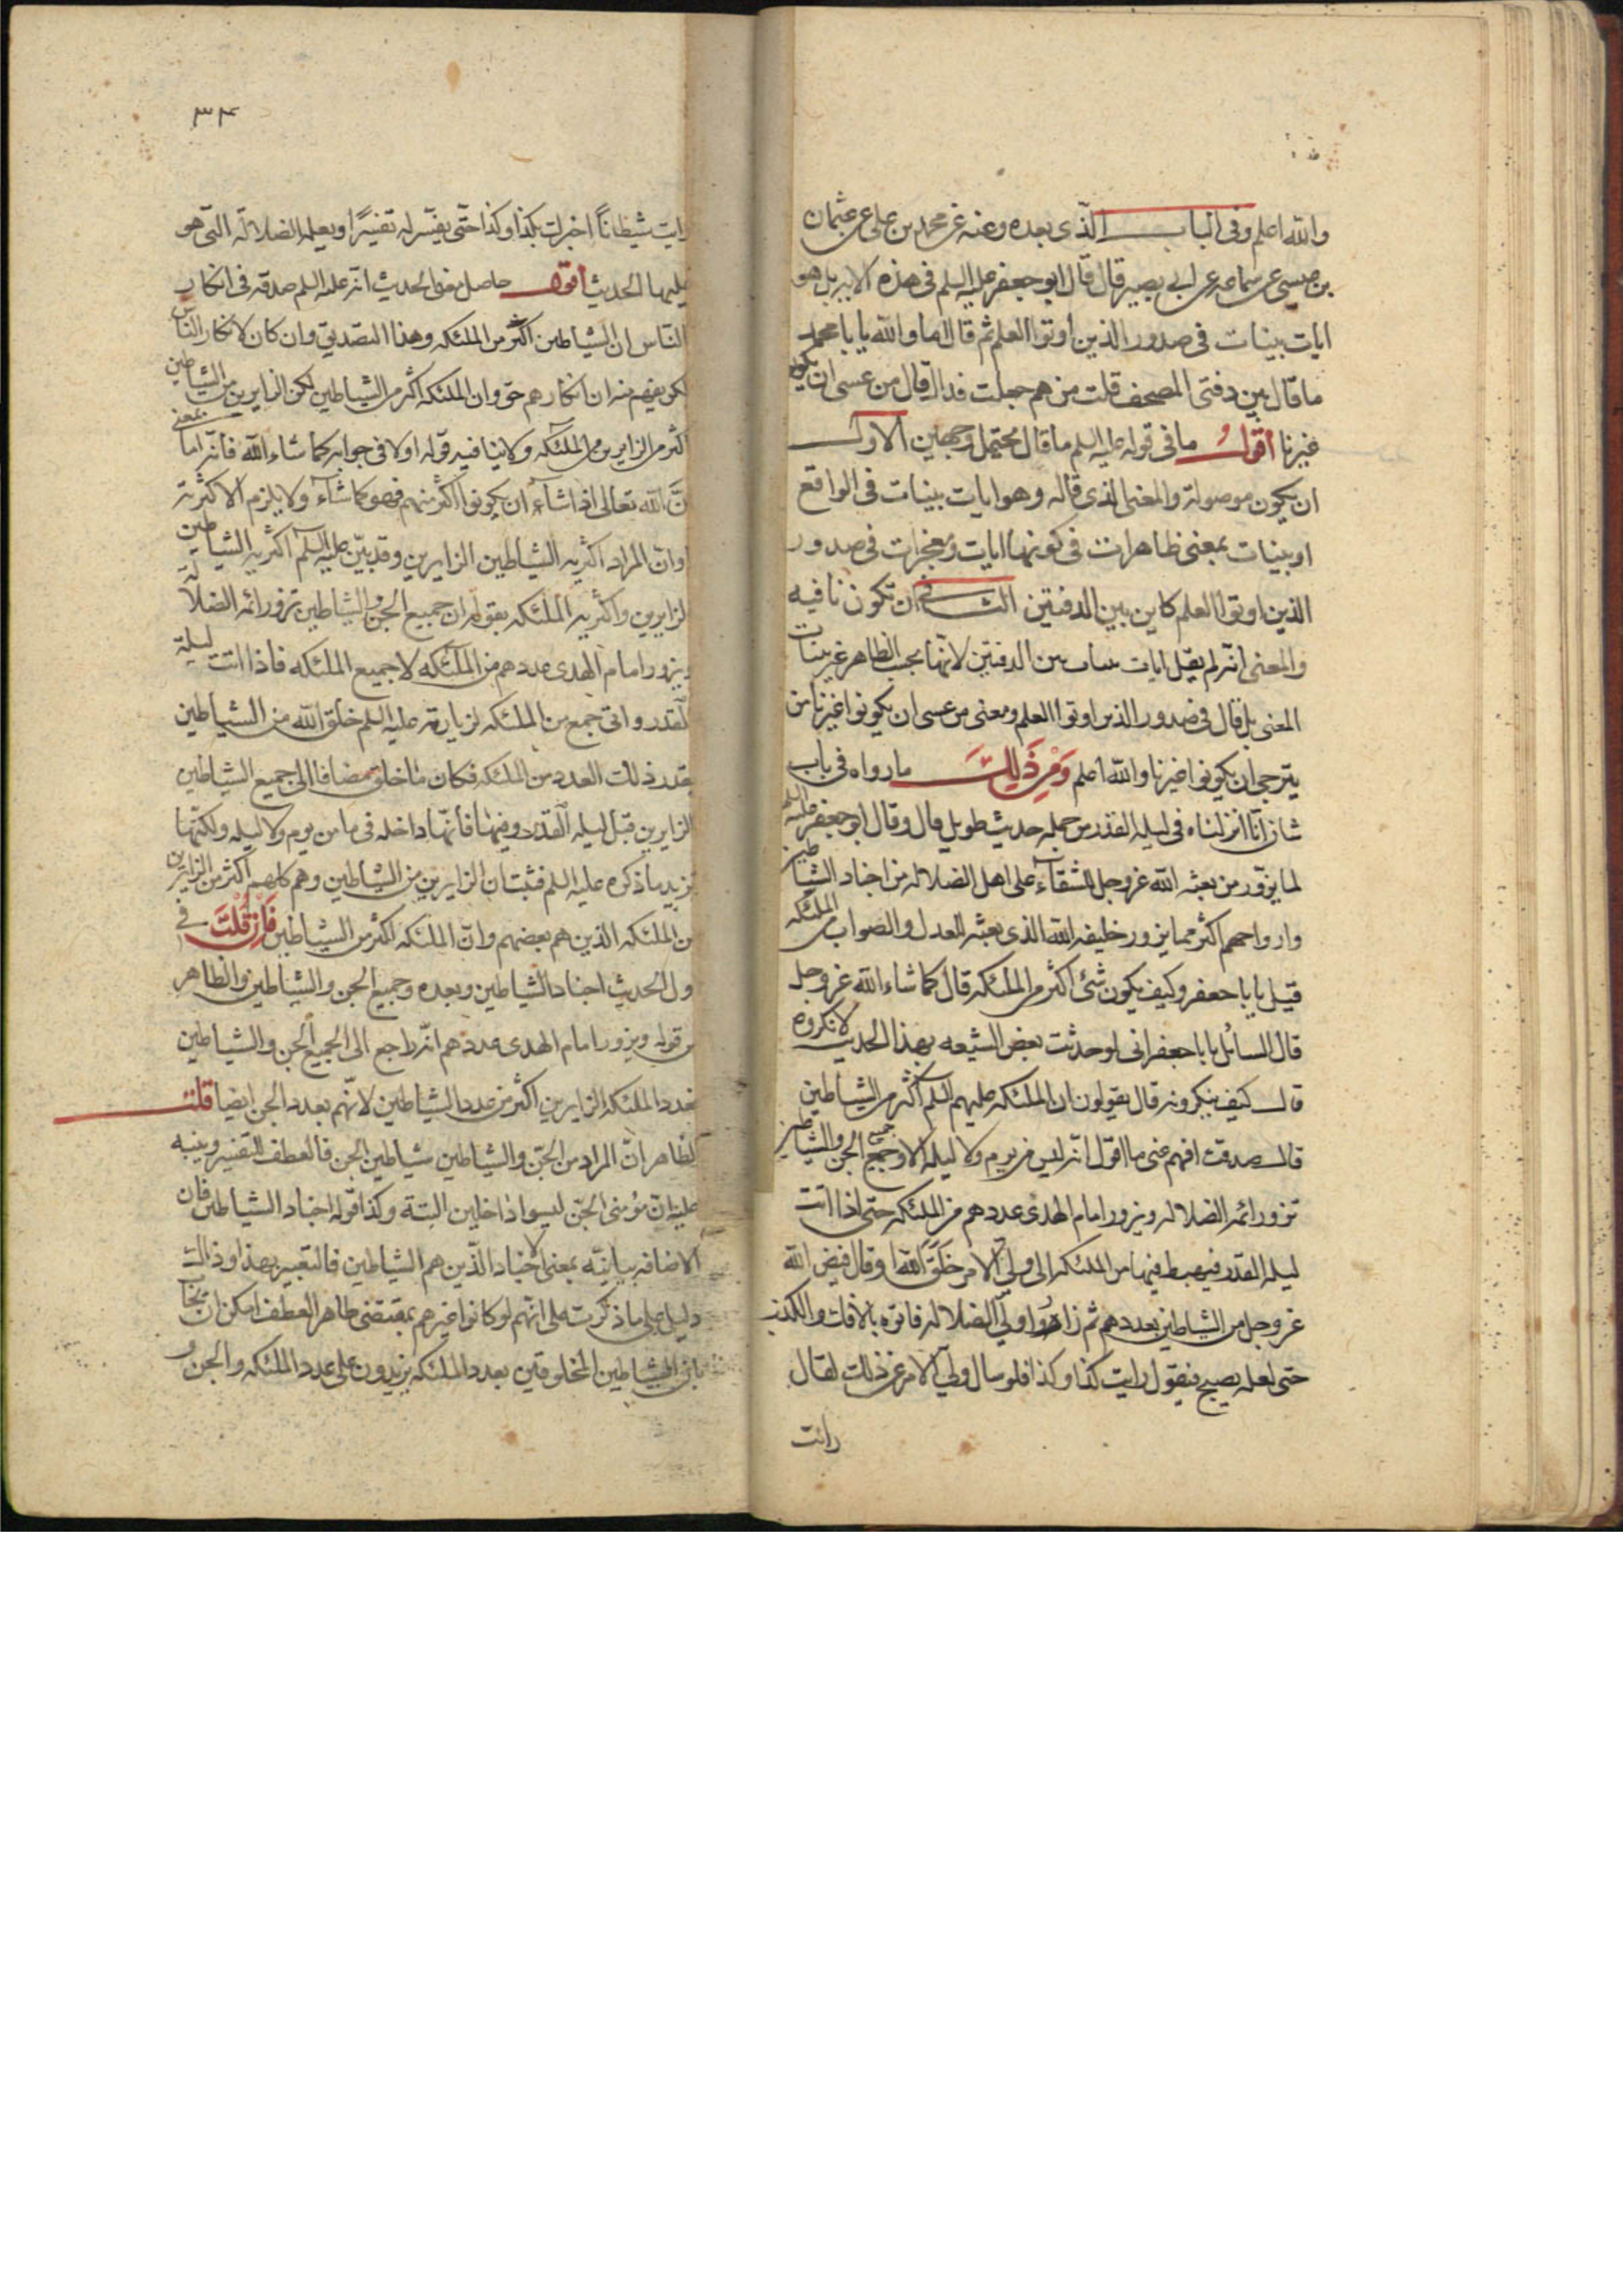 والله اعلم وفى الباب الذى بعده وعنه عن محمد بن على عن عثمان
بن عيسى عن سماعه عن ابى بصير قال قال ابو جعفر عليه السلم فى هذه الايه بل هو
ايات بينات فى صدور الذين اوتوا العلم ثم قال اما والله يا با محمد
ما قال بين دفتى المصحف قلت من هم جعلت فداك قال من عسى ان يكون
غيرنا اقول ما فى قوله عليه السلم ما قال محتمل وجهين الاول
ان يكون موصولة والمعنى الذى قاله وهو ايات بينات فى الواقع
او بينات بمعنى ظاهرات فى كونها ايات ومعجزات فى صدور
الذين اوتوا العلم كاين بين الدفتين الثانى ان تكون نافيه
والمعنى انه لم يقل ايات بين الدفتين لانها بحسب الظاهر غير بينات
المعنى بل قال فى صدور الذين اوتوا العلم ومعنى من عسى ان يكونوا غيرنا من
يترجى ان يكونوا غيرنا والله اعلم ومن ذلك ما رواه فى باب
شان انا انزلناه فى ليله القدر من جمله حديث طويل قال وقال ابو جعفر عليه السلم
لما يزور من بعثه الله عز وجل للشقاء على اهل الضلاله من اجناد الشياطين
وارواحهم اكثر مما يزور خليفه الله الذى بعثه للعدل والصواب من الملئكه
قيل يا با جعفر وكيف يكون شئ اكثر من الملئكه قال كما شاء الله عز وجل
قال السائل يا با جعفر انى لو حدثت بعض الشيعه بهذا الحديث لانكروه
قال كيف ينكرونه قال يقولون ان الملئكه عليهم السلم اكثر من الشياطين
قال صدقت افهم عنى ما اقول انه ليس من يوم ولا ليله الا وجميع الجن والشياطين
تزور ائمه الضلاله ويزور امام الهدى عددهم من الملئكه حتى اذا اتت
ليله القدر فيهبط فيها من الملئكه الى ولى الامر خلق الله او قال قيض الله
عز وجل من الشياطين بعددهم ثم زاروا ولى الضلاله فاتوه بالافك والكذب
حتى لعله يصبح فيقول رايت كذا وكذا فلو سال ولى الامر عن ذلك لقال
رايت
٣٤
رايت شيطانا اخبرك بكذا وكذا حتى يفسر له تفسيرا ويعلمه الضلاله التى هو
عليها الحديث اقول حاصل معنى الحديث انه عليه السلم صدقه فى انكار
الناس ان الشياطين اكثر من الملئكه وهذا التصديق وان كان لانكار الناس
لكن يفهم منه ان انكارهم حق وان الملئكه اكثر من الشياطين لكن الزايرين من الشياطين
اكثر من الزايرين من الملئكه ولا ينافيه قوله اولا فى جوابه كما شاء الله فانه اما بمعنى
ان الله تعالى اذا شاء ان يكونوا اكثر منهم فهو كما شاء ولا يلزم الاكثرية
او ان المراد اكثريه الشياطين الزايرين وقد بين عليه السلم اكثريه الشياطين
الزايرين واكثريه الملئكه بقوله ان جميع الجن والشياطين تزور ائمه الضلالة
ويزور امام الهدى عددهم من الملئكه لا جميع الملئكه فاذا اتت ليلة
القدر واتى جمع من الملئكه لزيارته عليه السلم خلق الله من الشياطين
بقدر ذلك العدد من الملئكه فكان ما خلق مضافا الى جميع الشياطين
الزايرين قبل ليله القدر وفيها فانها داخله فى ما من يوم ولا ليله ولكنها
تزيد ما ذكره عليه السلم فثبت ان الزايرين من الشياطين وهم كلهم اكثر من الزايرين
من الملئكه الذين هم بعضهم وان الملئكه اكثر من الشياطين فان قلت فى
اول الحديث اجناد الشياطين وبعده وجميع الجن والشياطين والظاهر
من قوله ويزور امام الهدى عددهم انه راجع الى الجميع الجن والشياطين
فعدد الملئكه الزايرين اكثر من عدد الشياطين لانهم بعدد الجن ايضا قلت
الظاهر ان المراد من الجن والشياطين شياطين الجن فالعطف للتفسير وينبه
عليه ان مؤمنى الجن ليسوا داخلين البتة وكذا قوله اجناد الشياطين فان
الاضافه بيانيه بمعنى الاجناد الذين هم الشياطين فالتعبير بهذا وذلك
دليل على ما ذكرته على انهم لو كانوا غيرهم بمقتضى ظاهر العطف امكن ان يجاب
بان الشياطين المخلوقين بعدد الملئكه يزيدون على عدد الملئكه والجن و